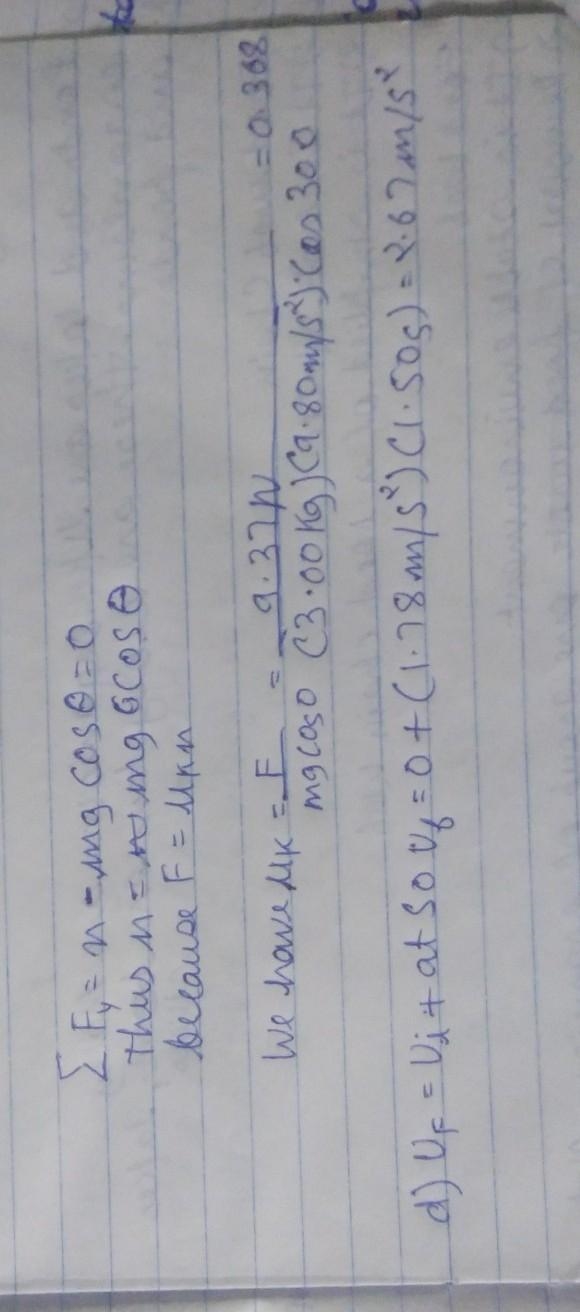 ∑ Fy = n - mg cosθ = 0
Thus n = mg cosθ
because F = μkn
We have μk = F / mg cosθ = 9.37N / (3.00Kg)(9.80m/s²) Cos 300 = 0.368
d) VF = Vi + at so Vf = 0 + (1.78 m/s²)(1.50s) = 2.67 m/s²